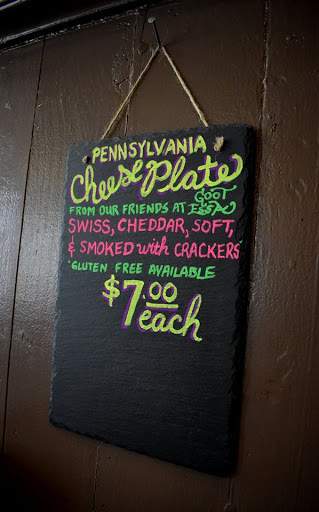 PENNSYLVANIA
Cheese Plate
FROM OUR FRIENDS AT GOOT
ESSA
SWISS, CHEDDAR, SOFT,
& SMOKED with CRACKERS
*GLUTEN FREE AVAILABLE*
$7.00
each